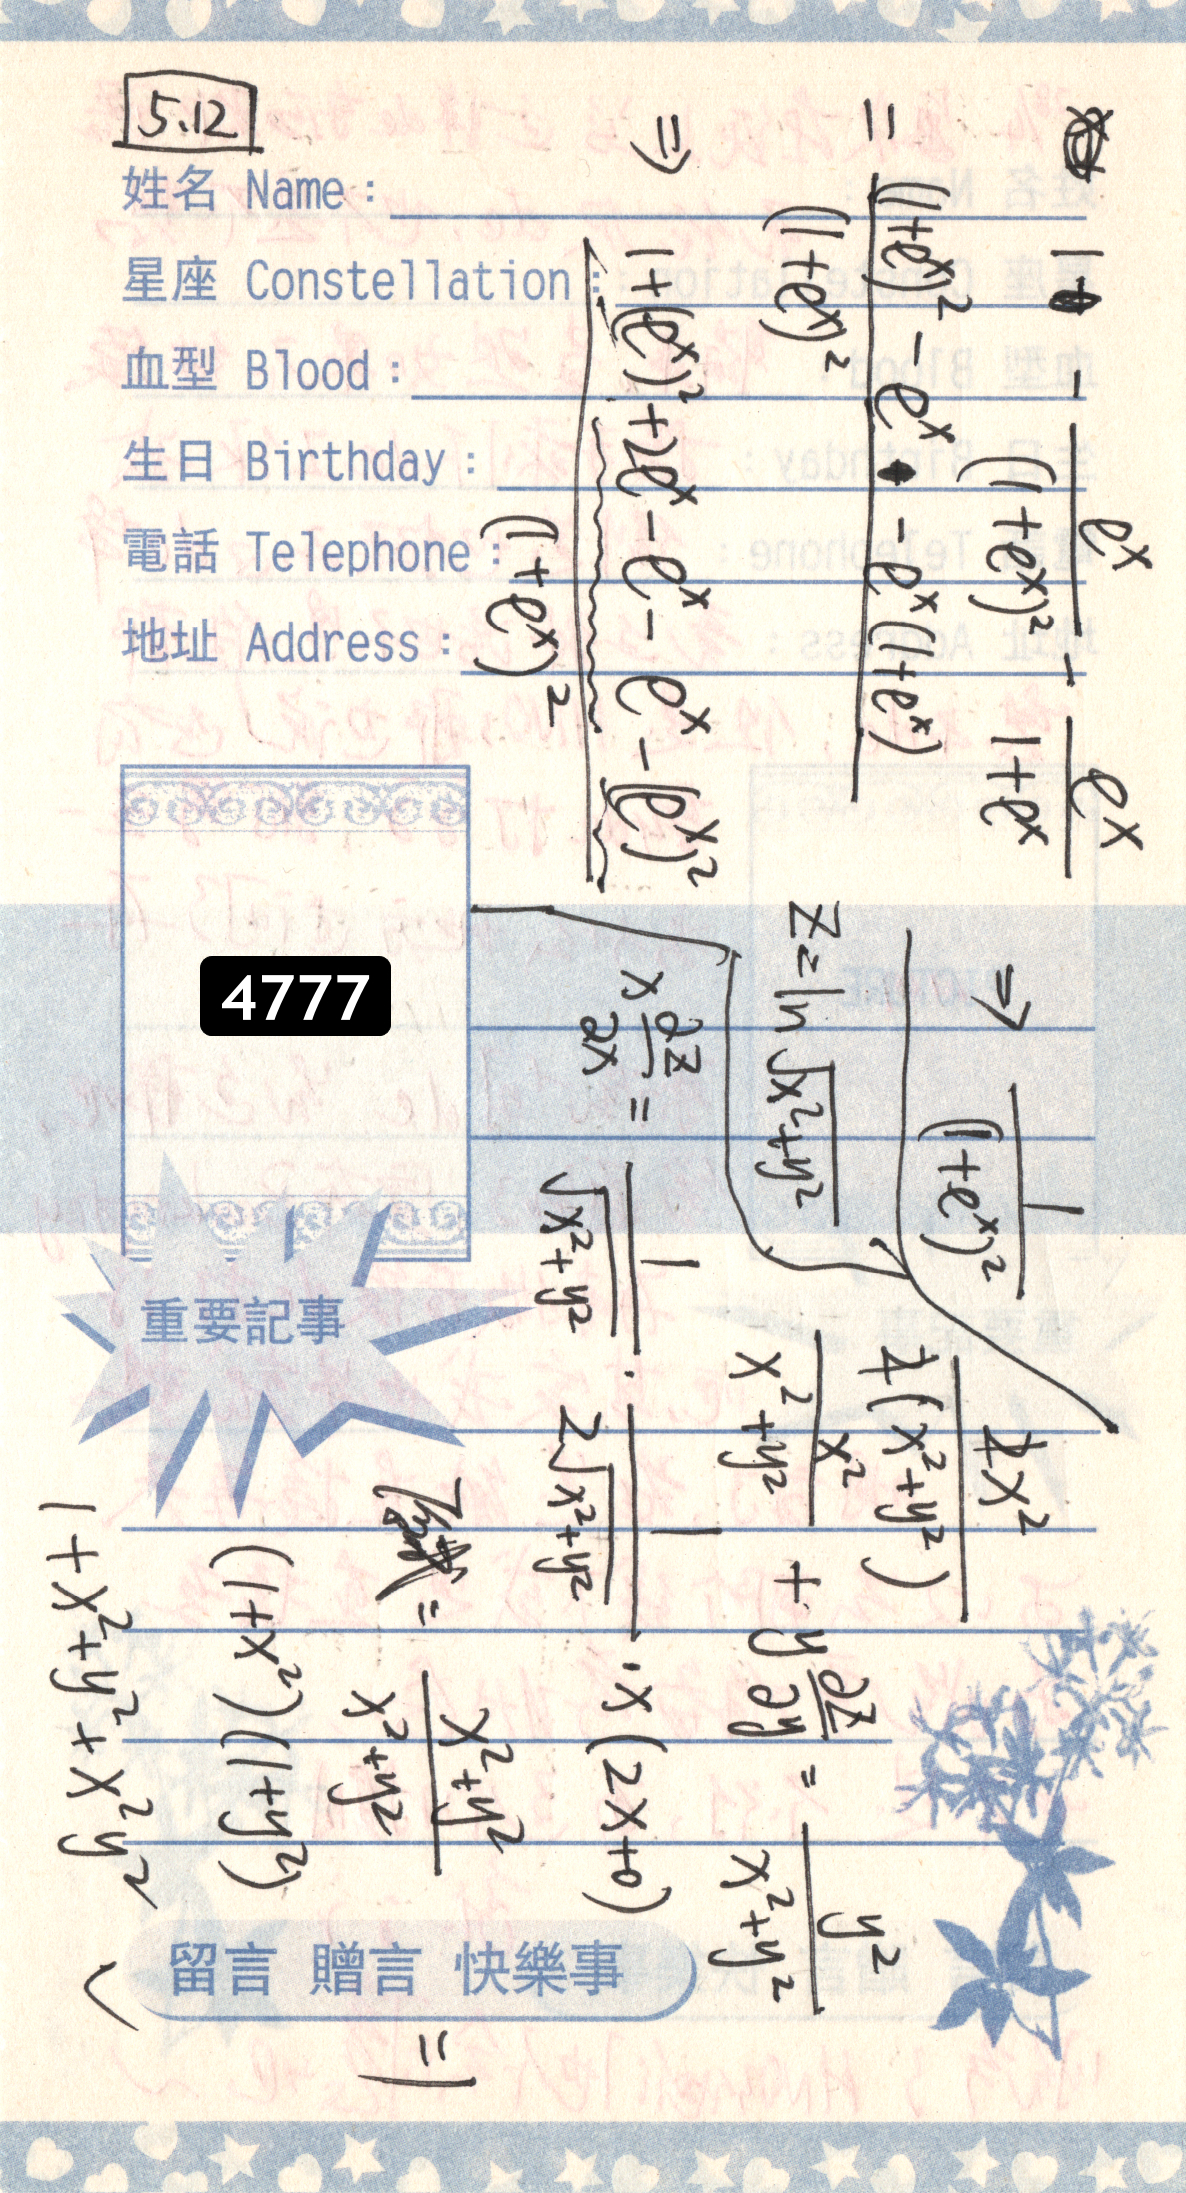 5.12
姓名 Name：
星座 Constellation：
血型 Blood：
生日 Birthday：
電話 Telephone：
地址 Address：
4777
重要記事
留言 贈言 快樂事
1 - e^x/(1+e^x)² - e^x/(1+e^x)
= ((1+e^x)² - e^x - e^x(1+e^x))/(1+e^x)²
⇒ (1+(e^x)²+2e^x - e^x - e^x - (e^x)²)/(1+e^x)²
⇒ 1/(1+e^x)²
z = ln √(x²+y²)
x ∂z/∂x = 1/√(x²+y²) · 1/(2√(x²+y²)) · x(2x+0)
2x²/(2(x²+y²))
x²/(x²+y²) + y ∂z/∂y = y²/(x²+y²)
= (x²+y²)/(x²+y²) = 1
(1+x²)(1+y²)
1+x²+y²+x²y²